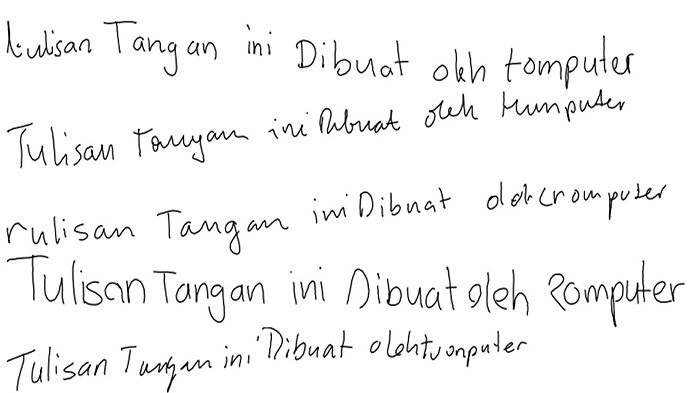 tulisan Tangan ini Dibuat oleh tomputer
Tulisan Tangan ini Dibuat oleh Kumputer
rulisan Tangan ini Dibuat oleh cromputer
Tulisan Tangan ini Dibuat oleh Romputer
Tulisan Tangan ini Dibuat oleh